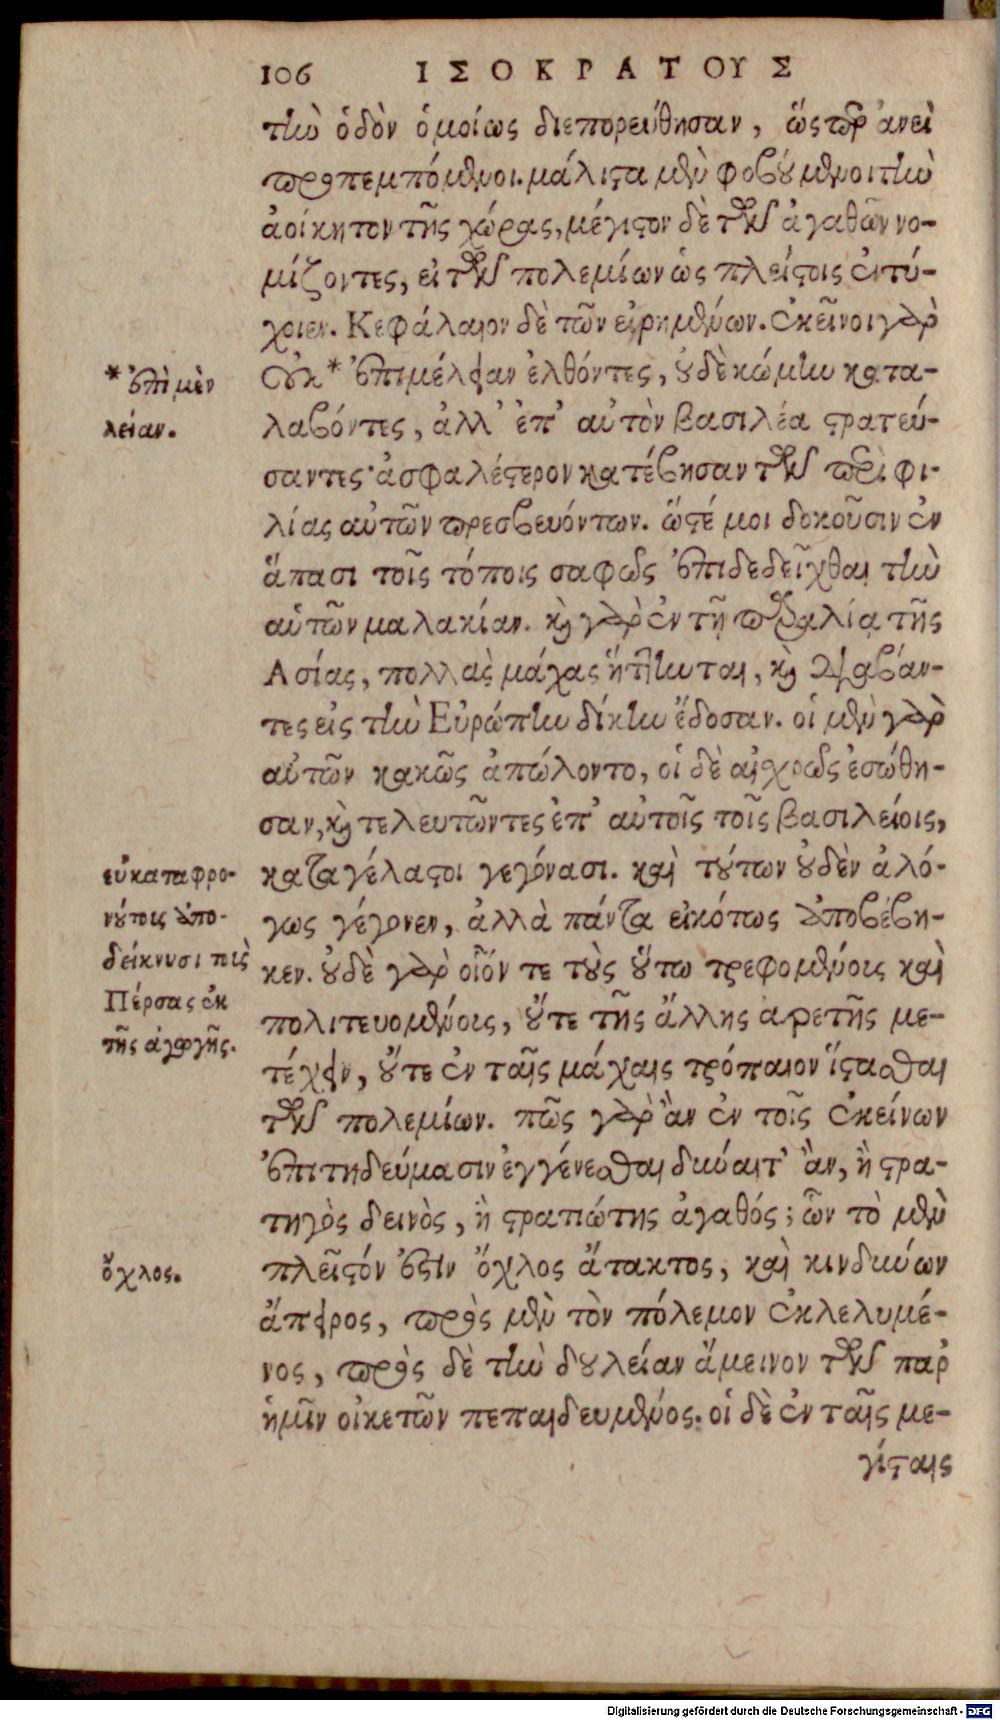 106 ΙΣΟΚΡΑΤΟΥΣ
τὴν ὁδὸν ὁμοίως διεπορεύθησαν, ὥσπερ ἀνεὶ
προπεμπόμενοι. μάλιστα μὲν φοβούμενοι τὴν
ἀοίκητον τῆς χώρας, μέγιστον δὲ τῶν ἀγαθῶν νο-
μίζοντες, εἰ τῶν πολεμίων ὡς πλείστοις ἐντύ-
χοιεν. Κεφάλαιον δὲ τῶν εἰρημένων. ἐκεῖνοι γὰρ
οὐκ * ἐπιμέλειαν ἐλθόντες, οὐδὲ κώμην κατα-
λαβόντες, ἀλλ' ἐπ' αὐτὸν βασιλέα στρατεύ-
σαντες· ἀσφαλέστερον κατέβησαν τῶν περὶ φι-
λίας αὐτῶν πρεσβευόντων. ὥστέ μοι δοκοῦσιν ἐν
ἅπασι τοῖς τόποις σαφῶς ἐπιδεδεῖχθαι τὴν
αὑτῶν μαλακίαν. καὶ γὰρ ἐν τῇ παραλίᾳ τῆς
Ασίας, πολλὰς μάχας ἥττηνται, καὶ διαβάν-
τες εἰς τὴν Εὐρώπην δίκην ἔδοσαν. οἱ μὲν γὰρ
αὐτῶν κακῶς ἀπώλοντο, οἱ δὲ αἰσχρῶς ἐσώθη-
σαν, καὶ τελευτῶντες ἐπ' αὐτοῖς τοῖς βασιλείοις,
καταγέλαστοι γεγόνασι. καὶ τούτων οὐδὲν ἀλό-
γως γέγονεν, ἀλλὰ πάντα εἰκότως ἀποβέβη-
κεν. οὐδὲ γὰρ οἷόν τε τοὺς οὕτω τρεφομένους καὶ
πολιτευομένους, οὔτε τῆς ἄλλης ἀρετῆς με-
τέχειν, οὔτε ἐν ταῖς μάχαις τρόπαιον ἵστασθαι
τῶν πολεμίων. πῶς γὰρ ἂν ἐν τοῖς ἐκείνων
ἐπιτηδεύμασιν ἐγγένεσθαι δύναιτ' ἂν, ἢ στρα-
τηγὸς δεινὸς, ἢ στρατιώτης ἀγαθός; ὧν τὸ μὲν
πλεῖστόν ἐστιν ὄχλος ἄτακτος, καὶ κινδύνων
ἄπειρος, πρὸς μὲν τὸν πόλεμον ἐκλελυμέ-
νος, πρὸς δὲ τὴν δουλείαν ἄμεινον τῶν παρ'
ἡμῖν οἰκετῶν πεπαιδευμένος. οἱ δὲ ἐν ταῖς με-
γίσταις
* ἐπὶ μὲν
λείαν.
εὐκαταφρο-
νήτους ἀπο-
δείκνυσι τοὺς
Πέρσας ἐκ
τῆς ἀγωγῆς.
ὄχλος.
Digitalisierung gefördert durch die Deutsche Forschungsgemeinschaft - DFG